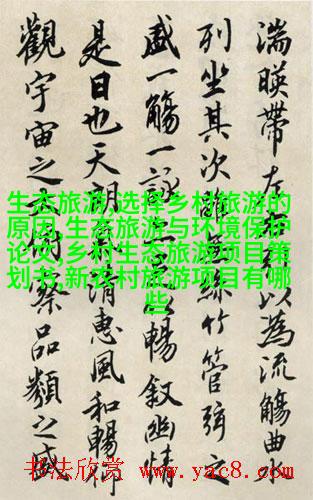 湍暎帶左以為流觴曲
列坐其次雖絲竹管弦之
盛一觴一詠以暢叙幽情
是日也天朗清惠風和暢仰
觀宇宙之俯察品類之盛
生态旅游,选择乡村旅游的
原因,生态旅游与环境保护
论文,乡村生态旅游项目策
划书,新农村旅游项目有哪
些
书法欣赏 www.yac8.com